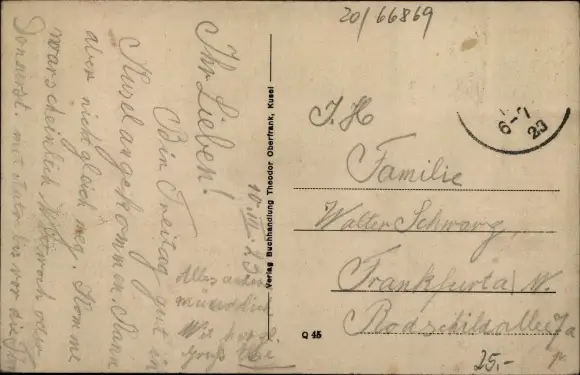 20/66869
Ihr Lieben!
Bin Freitag gut in
Kusel angekommen. Kann
aber nicht gleich weg. Komme
warscheinlich Mittwoch oder
Donnerst. mit Auto bis vor die
10. 23
Alles andere
mündlich
Gruß
Verlag Buchhandlung Theodor Oberfrank, Kusel
6-7
23
Familie
Walter Schwarz
Frankfurt a/M.
Rodschildallee 7a
Q 45
25.-